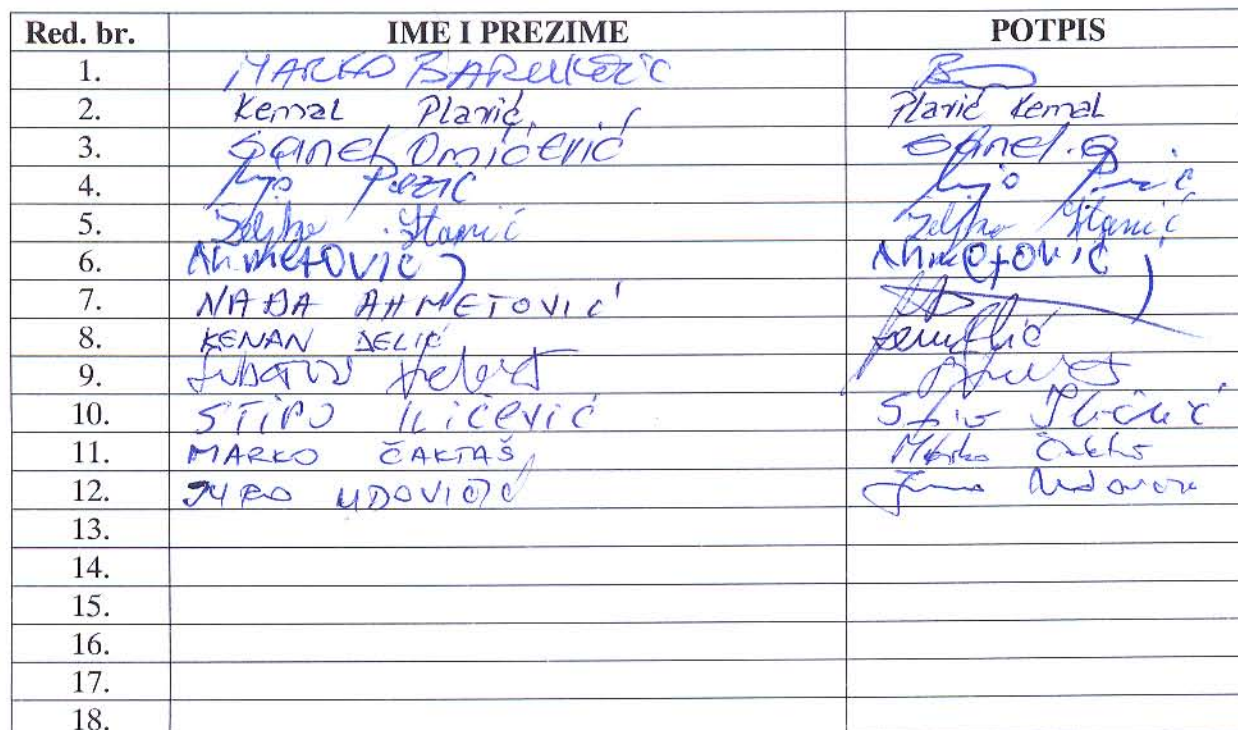 Red. br. IME I PREZIME POTPIS
1. MARKO BARUKČIĆ
2. Kemal Plavić Plavić Kemal
3. Sanel Omićević Sanel.O
4. Anjo
5. Željko Stanić Željko Stanić
6. Ahmetović Ahmetović
7. NAĐA AHMETOVIĆ
8. KENAN DELIĆ
9.
10. STIPO ILIČEVIĆ Stipo Iličević
11. MARKO ČAKTAŠ Marko Čaktaš
12. JURO UDOVIČIĆ
13.
14.
15.
16.
17.
18.